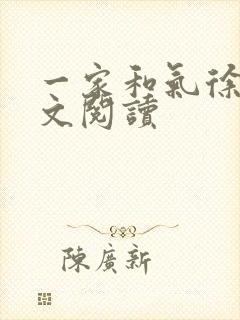 一家和氣徐
文閱讀
陳廣新